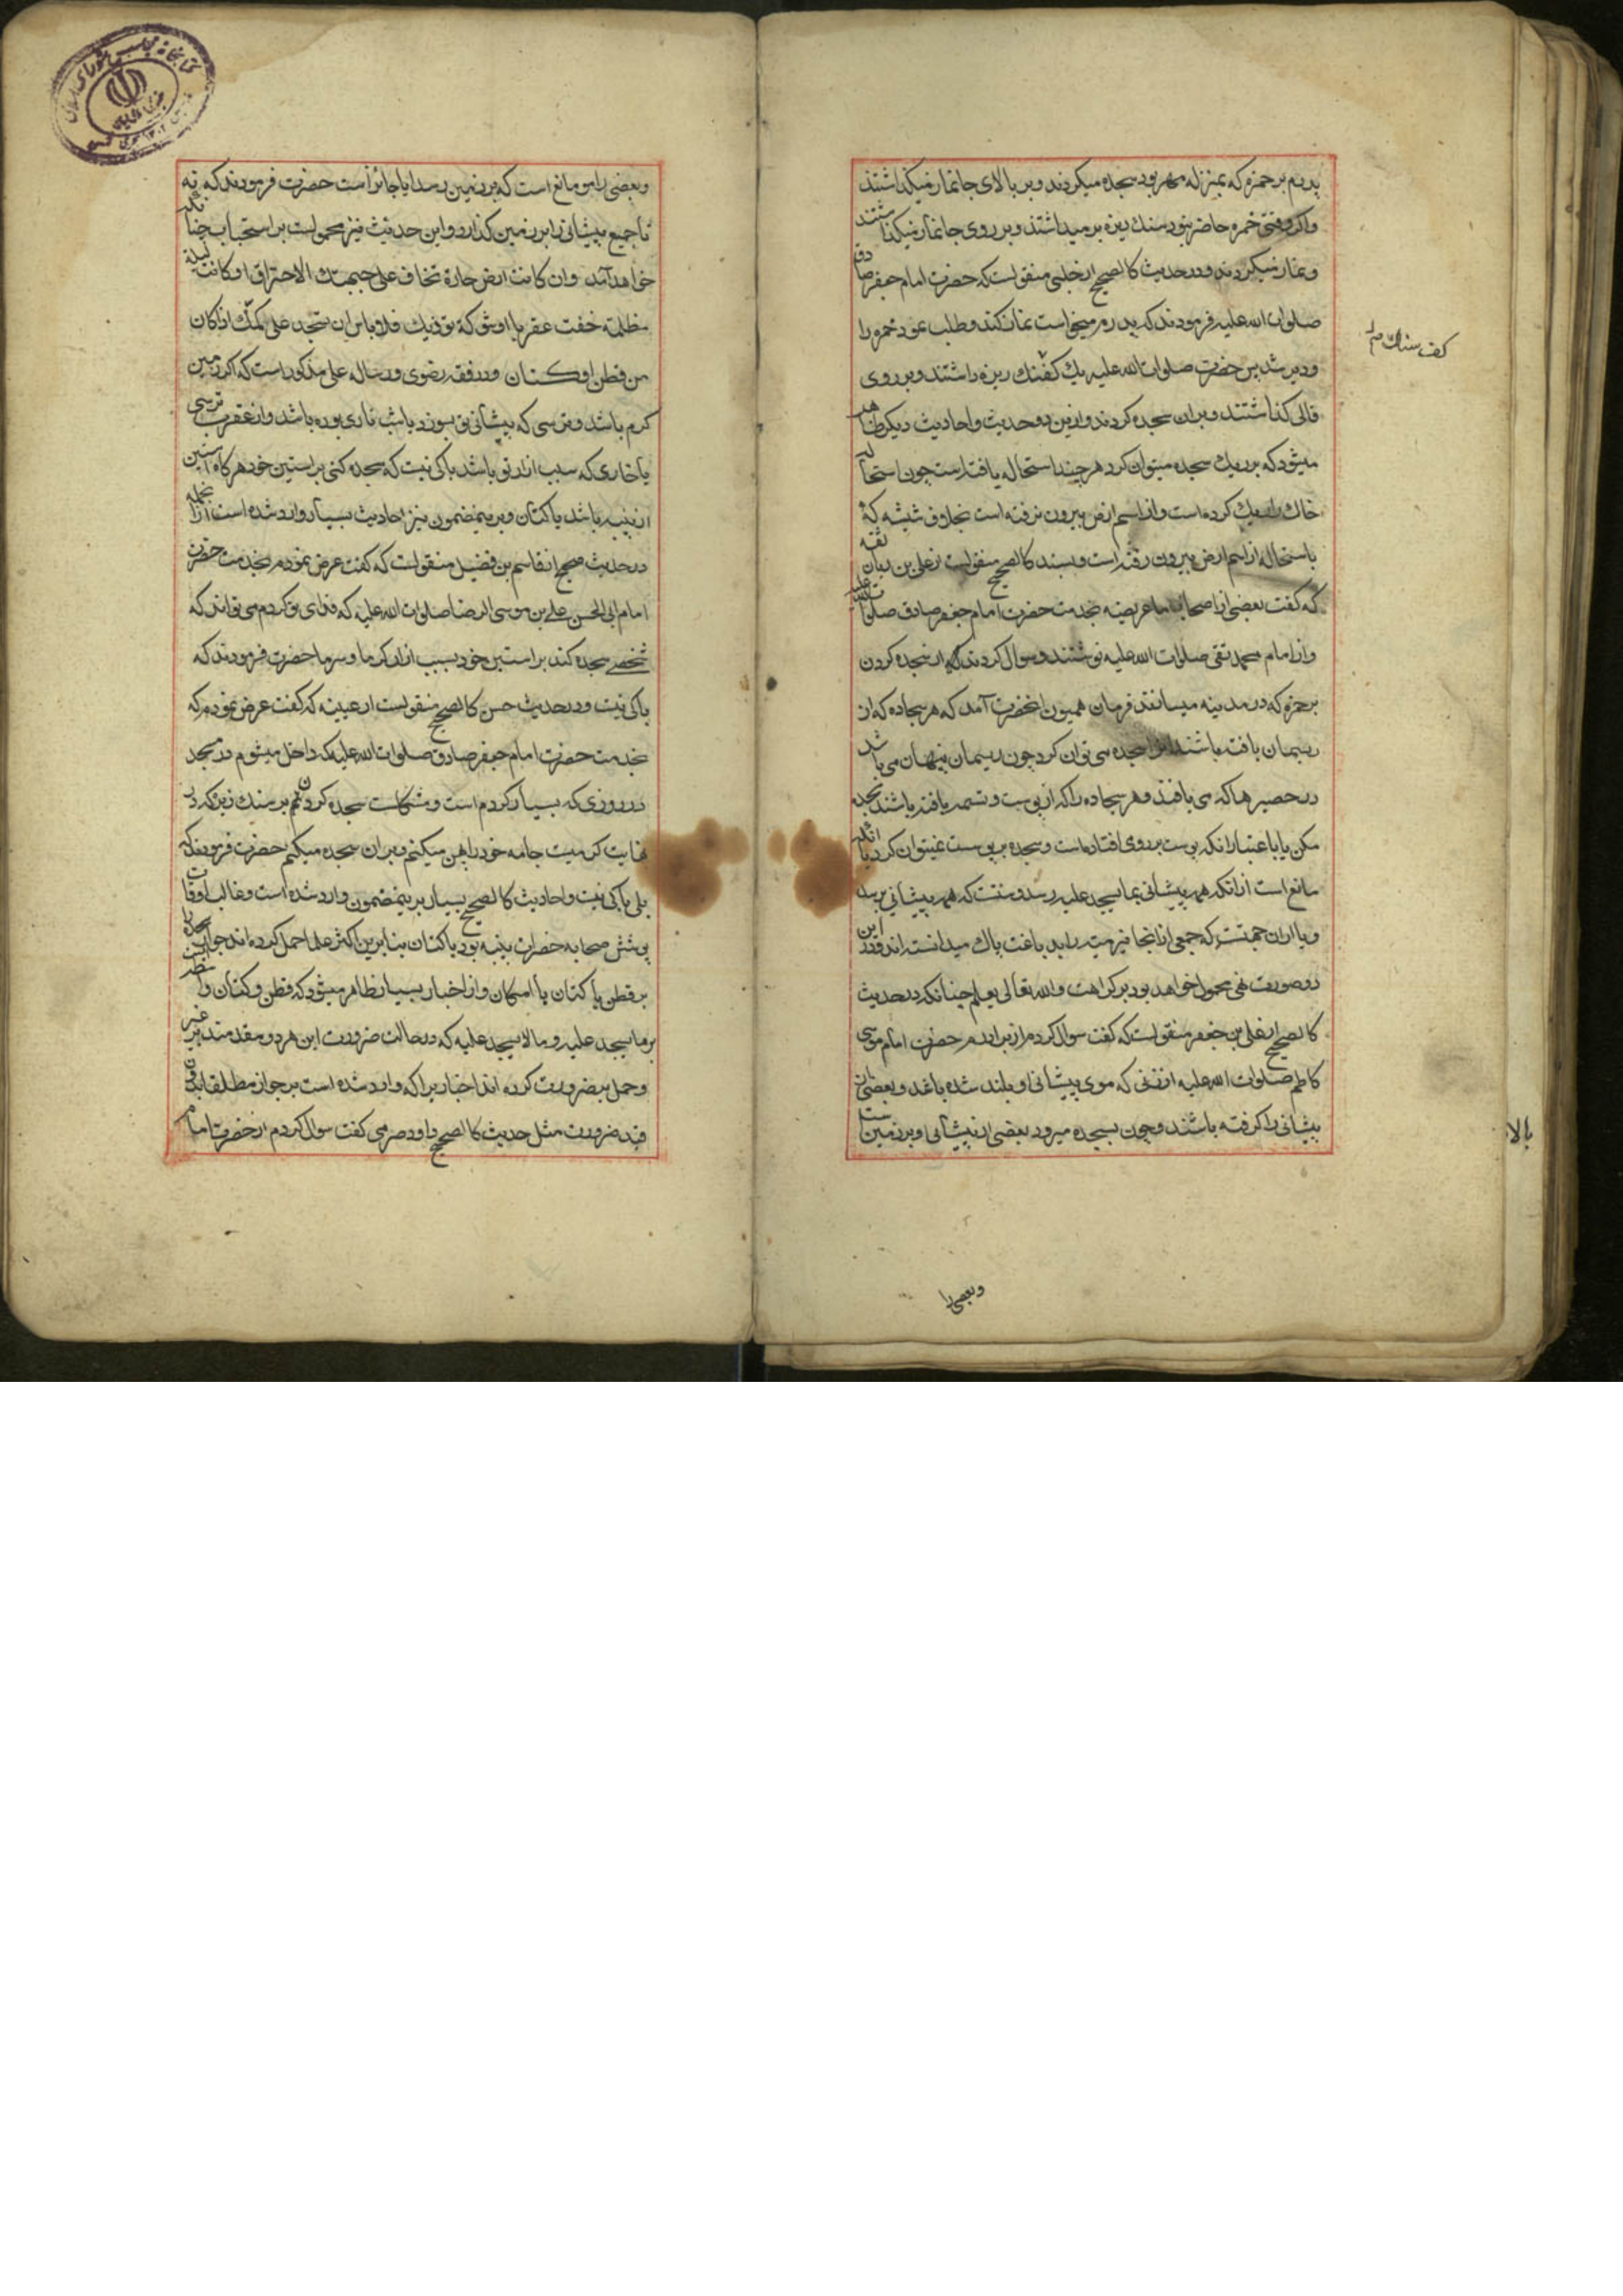 پدرم بر خمره که بمنزله مهر بود سجده میکردند و بر بالای جانماز میکذاشتند
واکر وقتی خمره حاضر نبود سنك ریزه برمیداشتند و بر روی جانماز میکذاشتند
و نماز میکردند و در حدیث کالصحیح از حلبی منقولست که حضرت امام جعفر صادق
صلوات الله علیه فرمودند که پدرم میخواست نماز کند و طلب نمود خمره را
و دیر شد پس حضرت صلوات الله علیه یك کف سنك ریزه داشتند و بر روی
قالی کذاشتند و بران سجده کردند و ازین دو حدیث و احادیث دیکر ظاهر
میشود که بر ریك سجده میتوان کرد هر چند استحاله یافته است چون استحاله
خاك را ریك کرده است و از اسم ارض بیرون نرفته است بخلاف شیشه که
باستحاله از اسم ارض بیرون رفته است و بسند کالصحیح منقولست از علی بن ریان ثقه
که کفت بعضی از اصحاب ما عریضه بخدمت حضرت امام جعفر صادق صلوات الله علیه
و از امام محمد تقی صلوات الله علیه نوشتند و سوال کردند که از سجده کردن
بر خمره که در مدینه میسازند فرمان همیون انحضرت آمد که هر سجاده که از
ریسمان بافته باشند برا سجده می توان کرد چون ریسمان پنهان می باشد
در حصیر ها که می بافند و هر سجاده را که از پوست و تسمه بافته باشند سجده
مکن یا باعتبار انکه پوست بر روی افتاده است و سجده بر پوست نمیتوان کرد یا انکه
مانع است از انکه همه پیشانی بما یسجد علیه رسد و سنت که همه پیشانی برسد
و یا از ان جهتست که جمعی از انجا فیرمیته را بدباغت پاك میدانسته اند و در این
دو صورت نهی محمول خواهد بود بر کراهت والله تعالی یعلم چنانکه در حدیث
کالصحیح از علی بن جعفر منقولست که کفت سوال کردم از برادرم حضرت امام موسی
کاظم صلوات الله علیه از زنی که موی پیشانی او بلند شده باشد و بعضی از
پیشانی را کرفته باشند و چون بسجده میرود بعضی از پیشانی او بر زمین است
کف سنك
و بعضی را
بالا
و بعضی را مو مانع است که بر زمین رسد ایا جائز است حضرت فرمودند که نه
تا جمیع پیشانی را بر زمین کذارد و این حدیث نیز محمولست بر استحباب چنانکه
خواهد آمد وان کانت ارض حارة تخاف علی جبهتك الاحتراق او کانت لیلة
مظلمة خفت عقربا او شوکة توذیك فلا باس ان تسجد علی کمّك اذا کان
من قطن او کتان و در فقه رضوی و رساله علی مذکور است که اکر زمین
کرم باشد و ترسی که پیشانی تو بسوزد یا شب تاری بوده باشد و از عقرب ترسی
یا خاری که سبب ازار تو باشد باکی نیست که سجده کنی بر استین خود هر کاه استین
از پنبه باشد یا کتان و برینمضمون نیز احادیث بسیار وارد شده است از انجمله
در حدیث صحیح از قاسم بن فضیل منقولست که کفت عرض نمودم بخدمت حضرت
امام ابی الحسن علی بن موسی الرضا صلوات الله علیه که فدای تو کردم می تواند که
شخصی سجده کند بر استین خود بسبب ازار کرما و سرما حضرت فرمودند که
باکی نیست و در حدیث حسن کالصحیح منقولست از عیینه که کفت عرض نمودم که
بخدمت حضرت امام جعفر صادق صلوات الله علیه که داخل میشوم در مسجد
در روزی که بسیار کرم است و مشکلست سجده کردنم بر سنك ریزه که در
نهایت کرمیست جامه خود را پهن میکنم و بران سجده میکنم حضرت فرمودند که
بلی باکی نیست و احادیث کالصحیح بسیار برینمضمون وارد شده است و غالب اوقات
پوشش صحابه حضرات پنبه بود یا کتان بنا برین اکثر علما حمل کرده اند جواز سجده را
بر قطن یا کتان با امکان و از اخبار بسیار ظاهر میشود که قطن و کتان واسطه است
بر ما یسجد علیه و ما لا یسجد علیه که در حالت ضرورت این هر دو مقدمند بر غیر
و حمل بر ضرورت کرده اند اخبار برا که وارد شده است بر جواز مطلقا بدون
قید ضرورت مثل حدیث کالصحیح داود صرمی کفت سوال کردم از حضرت امام